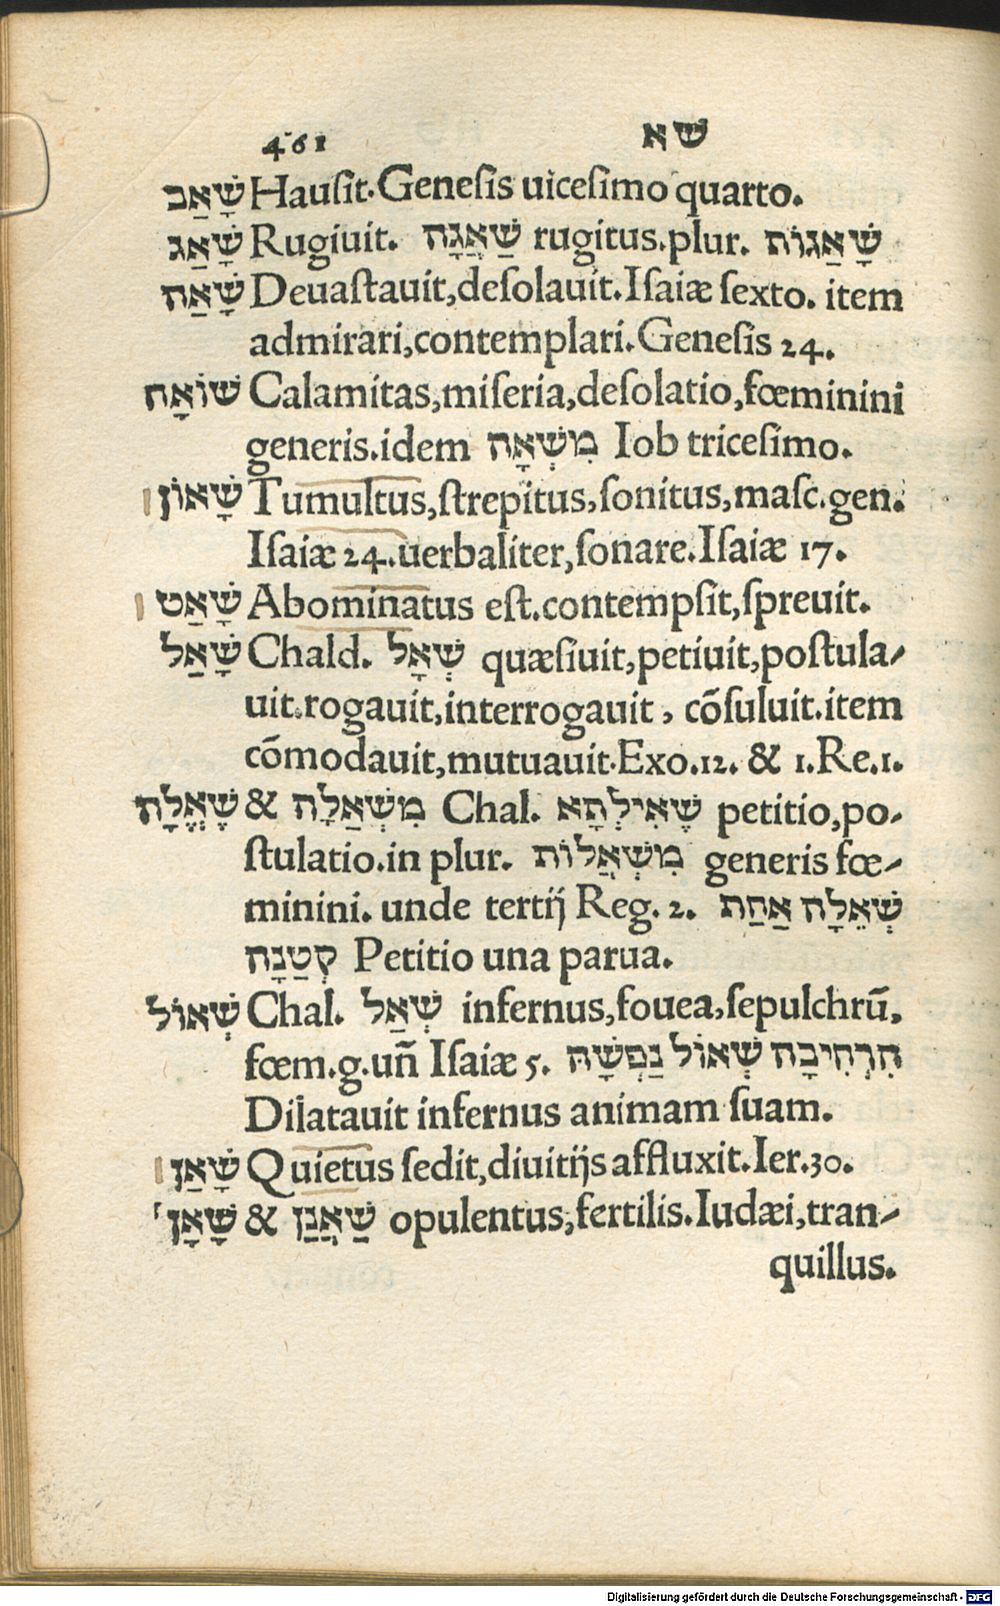 461 שא
שָׁאַב Hausit. Genesis uicesimo quarto.
שָׁאַג Rugiuit. שַׁאֲגָה rugitus. plur. שָׁאַגוֹת
שָׁאַה Deuastauit, desolauit. Isaiæ sexto. item
admirari, contemplari. Genesis 24.
שׁוֹאָה Calamitas, miseria, desolatio, fœminini
generis. idem מִשְׁאָה Iob tricesimo.
שָׁאוֹן Tumultus, strepitus, sonitus, masc. gen.
Isaiæ 24. uerbaliter, sonare. Isaiæ 17.
שָׁאַט Abominatus est. contempsit, spreuit.
שָׁאַל Chald. שְׁאָל quæsiuit, petiuit, postula-
uit. rogauit, interrogauit, cõsuluit. item
cõmodauit, mutuauit. Exo. 12. & 1. Re. 1.
שֶׁאֱלָה & מִשְׁאַלָה Chal. שֶׁאִילְתָא petitio, po-
stulatio. in plur. מִשְׁאֲלוֹת generis fœ-
minini. unde tertij Reg. 2. שְׁאֵלָה אַחַת
קְטַנָה Petitio una parua.
שְׁאוֹל Chal. שְׁאַל infernus, fouea, sepulchrũ,
fœm. g. uñ Isaiæ 5. הִרְחִיבָה שְׁאוֹל נַפְשָׁהּ
Dilatauit infernus animam suam.
שָׁאַן Quietus sedit, diuitijs affluxit. Ier. 30.
שָׁאָן & שַׁאֲנַן opulentus, fertilis. Iudæi, tran-
quillus.
Digitalisierung gefördert durch die Deutsche Forschungsgemeinschaft - DFG